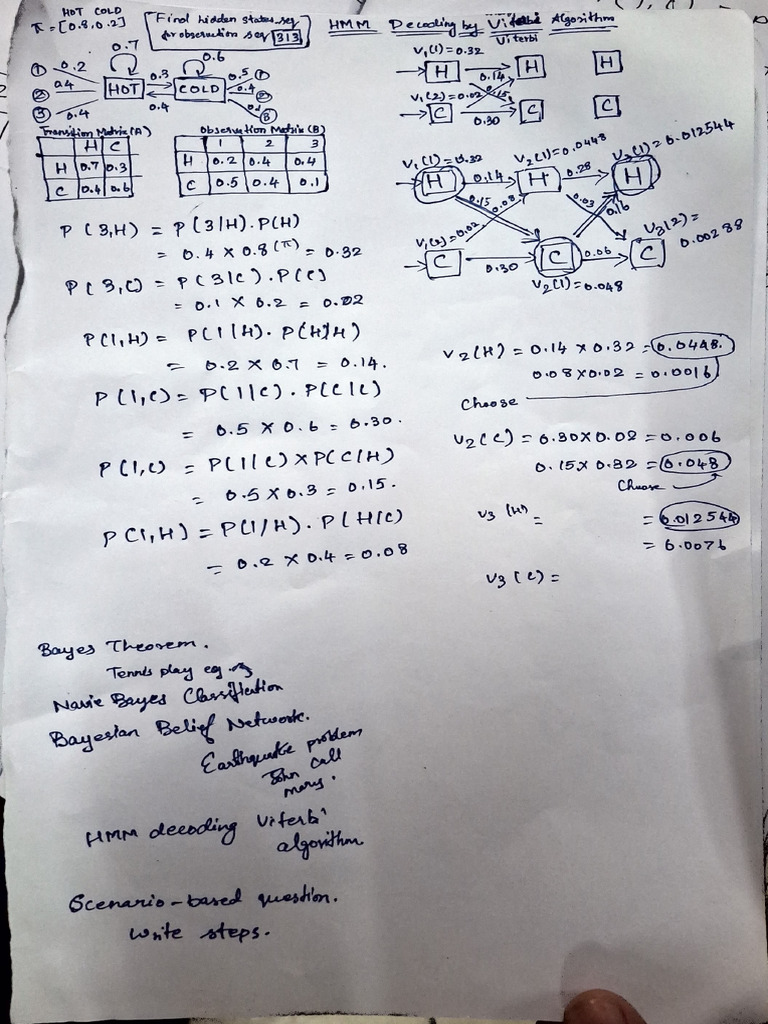 HOT COLD
π = [0.8, 0.2]
Find hidden states seq
for observation seq 313
HMM Decoding by Viterbi Algorithm
Viterbi
0.7
0.6
1 0.2
2 0.4
3 0.4
HOT
0.3
0.4
COLD
0.5 1
0.4 2
0.1 3
Transition Matrix (A)
H C
H 0.7 0.3
C 0.4 0.6
Observation Matrix (B)
1 2 3
H 0.2 0.4 0.4
C 0.5 0.4 0.1
V₁(1) = 0.32
H 0.14 H H
0.15
V₁(2) = 0.02
C 0.30 C C
V₁(1) = 0.32
V₂(1) = 0.0448
V₃(1) = 0.012544
H 0.14 H 0.28 H
0.15 0.08 0.03 0.16
V₁(2) = 0.02
V₃(2) =
0.00288
C 0.30 C 0.06 C
V₂(1) = 0.048
P(3,H) = P(3/H). P(H)
= 0.4 × 0.8 (π) = 0.32
P(3,C) = P(3/C). P(C)
= 0.1 × 0.2 = 0.02
P(1,H) = P(1/H). P(H/H)
= 0.2 × 0.7 = 0.14.
P(1,C) = P(1/C). P(C/C)
= 0.5 × 0.6 = 0.30.
P(1,C) = P(1/C) × P(C/H)
= 0.5 × 0.3 = 0.15.
P(1,H) = P(1/H). P(H/C)
= 0.2 × 0.4 = 0.08
V₂(H) = 0.14 × 0.32 = 0.0448.
0.08 × 0.02 = 0.0016
Choose
V₂(C) = 0.30 × 0.02 = 0.006
0.15 × 0.32 = 0.048
Choose
V₃(H) = = 0.012544
= 0.0076
V₃(C) =
Bayes Theorem.
Tennis play eg.
Navie Bayes Classification
Bayesian Belief Network.
Earthquake problem
John call
mary.
HMM decoding Viterbi
algorithm
Scenario-based question.
Write steps.